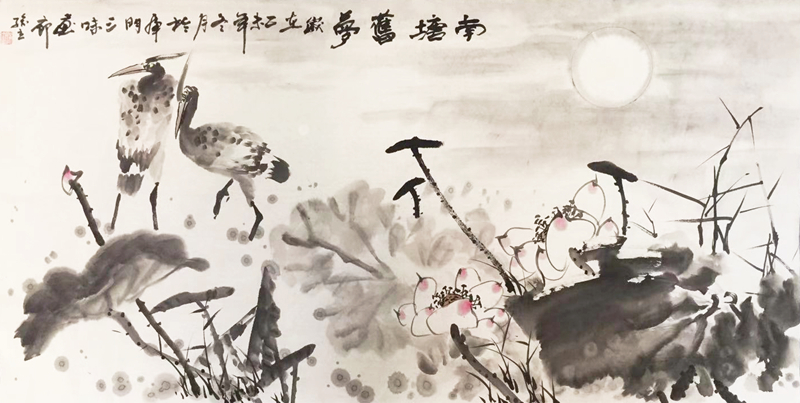 南塘舊夢 歲在乙未年冬月於津門三味畫